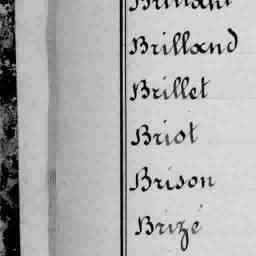 Brilland
Brillet
Briot
Brison
Brizé